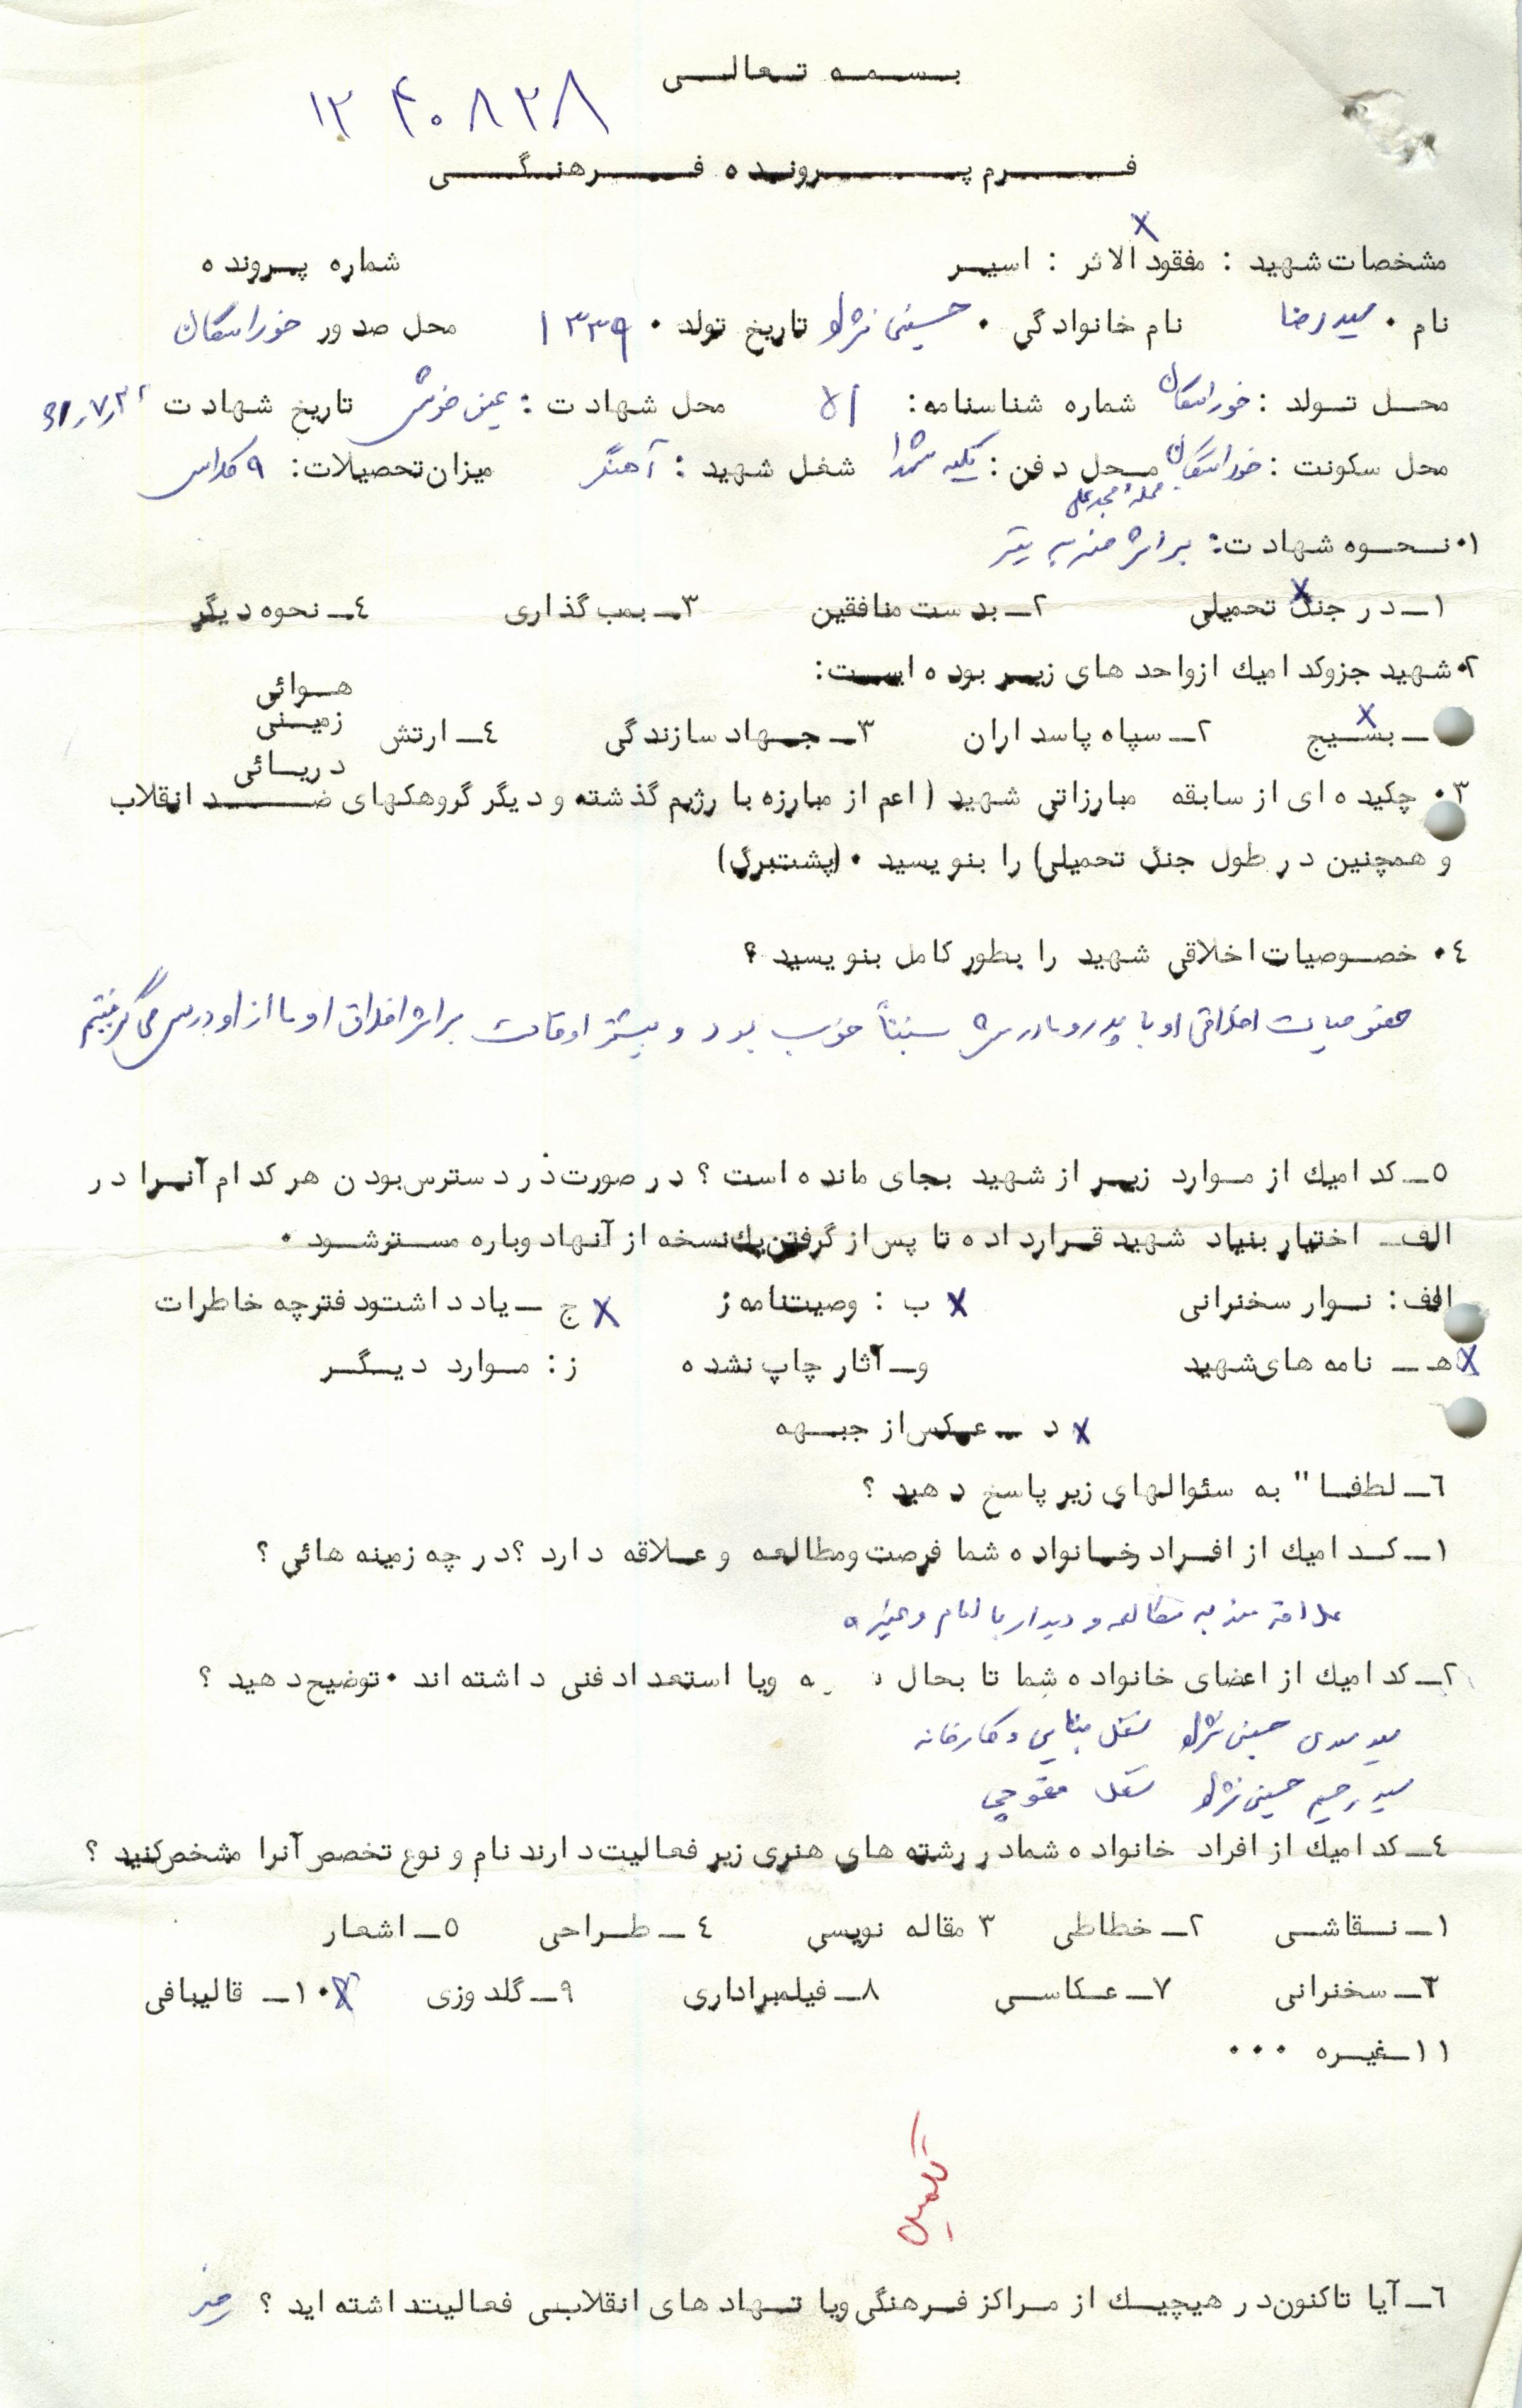 بسمه تعالی
۱۲۴۰۸۲۸
فرم پرونده فرهنگی
مشخصات شهید : مفقود الاثر : اسیر شماره پرونده
نام . سیدرضا نام خانوادگی . حسینی نژاد تاریخ تولد . ۱۳۳۹ محل صدور خوراسگان
محل تولد : خوراسگان شماره شناسنامه : ۵۱ محل شهادت : عین خوش تاریخ شهادت
محل سکونت : خوراسگان محل دفن : تکیه شهدا شغل شهید : آهنگر میزان تحصیلات : ۹ کلاس
محله
۱. نحوه شهادت : بر اثر ضربه تیر
۱ـ در جنگ تحمیلی X ۲ـ بدست منافقین ۳ـ بمب گذاری ٤ـ نحوه دیگر
۲. شهید جزو کدامیک از واحد های زیر بوده است :
هوائی
ـ بسیج X ۲ـ سپاه پاسداران ۳ـ جهاد سازندگی ٤ـ ارتش زمینی
دریائی
۳. چکیده ای از سابقه مبارزاتی شهید ( اعم از مبارزه با رژیم گذشته و دیگر گروهکهای ضد انقلاب
و همچنین در طول جنگ تحمیلی) را بنویسید . (پشت برگ)
٤. خصوصیات اخلاقی شهید را بطور کامل بنویسید ؟
خصوصیات اخلاقی او با پدر و مادرش نسبتاً خوب بود و بیشتر اوقات بر اثر اخلاق او ما از او درس می گرفتیم
۵ـ کدامیک از موارد زیر از شهید بجای مانده است ؟ در صورت در دسترس بودن هر کدام آنرا در
الف ـ اختیار بنیاد شهید قرار داده تا پس از گرفتن یک نسخه از آنها دوباره مسترشود .
الف : نوار سخنرانی X ب : وصیتنامه ز X ج ـ یادداشت و دفترچه خاطرات
X هـ ـ نامه های شهید و ـ آثار چاپ نشده ز : موارد دیگر
X د ـ عکس از جبهه
٦ـ لطفا" به سئوالهای زیر پاسخ دهید ؟
۱ـ کدامیک از افراد خانواده شما فرصت ومطالعه و علاقه دارد ؟ در چه زمینه هائی ؟
علاقه مند به مطالعه و دیدار با امام و غیره
۲ـ کدامیک از اعضای خانواده شما تا بحال ویا استعداد فنی داشته اند . توضیح دهید ؟
سید مهدی حسینی نژاد شغل بنایی و کارخانه
سید رحیم حسینی نژاد شغل مقوچی
٤ـ کدامیک از افراد خانواده شما در رشته های هنری زیر فعالیت دارند نام و نوع تخصص آنرا مشخص کنید ؟
۱ـ نقاشی ۲ـ خطاطی ۳ مقاله نویسی ٤ـ طراحی ۵ـ اشعار
٦ـ سخنرانی ۷ـ عکاسی ۸ـ فیلمبراداری ۹ـ گلدوزی X ۱۰ـ قالیبافی
۱۱ـ غیره ...
تکمیل
٦ـ آیا تاکنون در هیچیک از مراکز فرهنگی ویا نهاد های انقلابی فعالیت داشته اید ؟ خیر